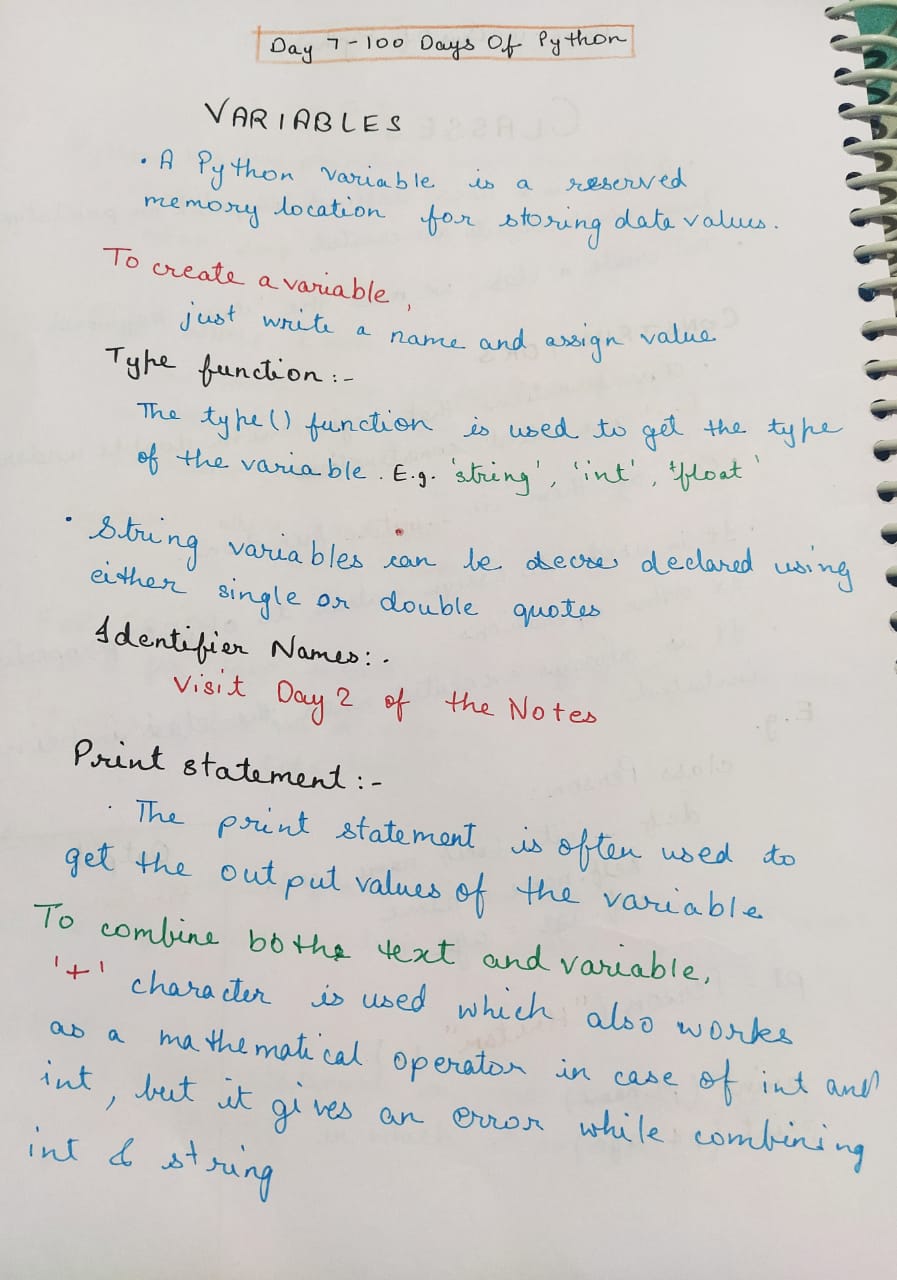 Day 7-100 Days Of Python
VARIABLES
• A Python variable is a reserved
memory location for storing date values.
To create a variable,
just write a name and assign value
Type function :-
The type() function is used to get the type
of the variable. E.g. 'string', 'int', 'float'
• String variables can be declared using
either single or double quotes
Identifier Names:-
Visit Day 2 of the Notes
Print statement :-
• The print statement is often used to
get the output values of the variable
To combine bothe text and variable,
'+' character is used which also works
as a mathematical operator in case of int and
int, but it gives an error while combining
int & string